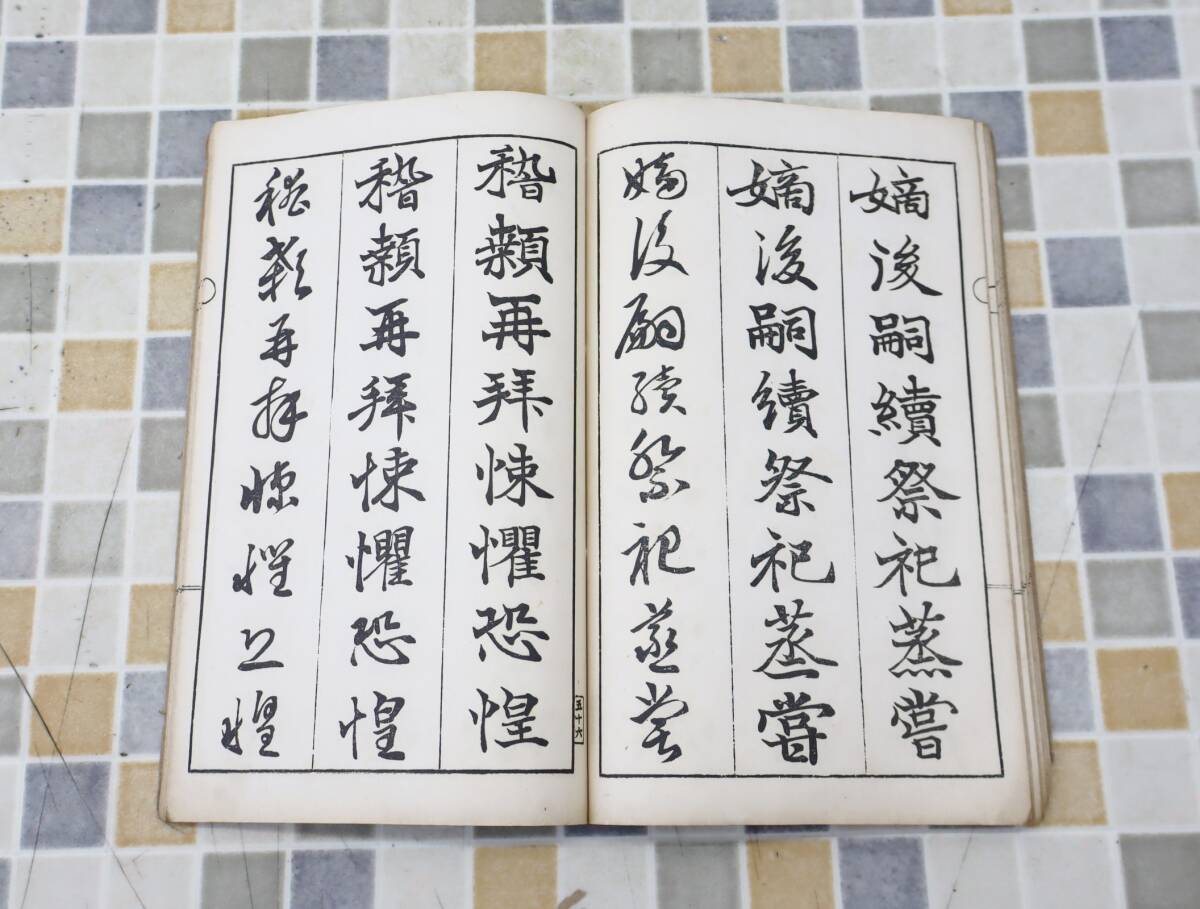 嫡後嗣續祭祀蒸嘗
嫡後嗣續祭祀蒸嘗
嫡後嗣續祭祀蒸嘗
稽顙再拜悚懼恐惶
稽顙再拜悚懼恐惶
稽顙再拜悚懼恐惶
五十六